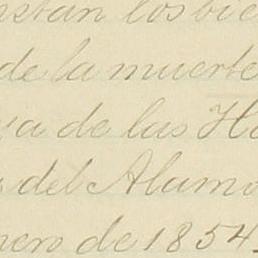 nstan los bie
de la muerte
ya de las Ha
s del Alamo
nero de 1854.